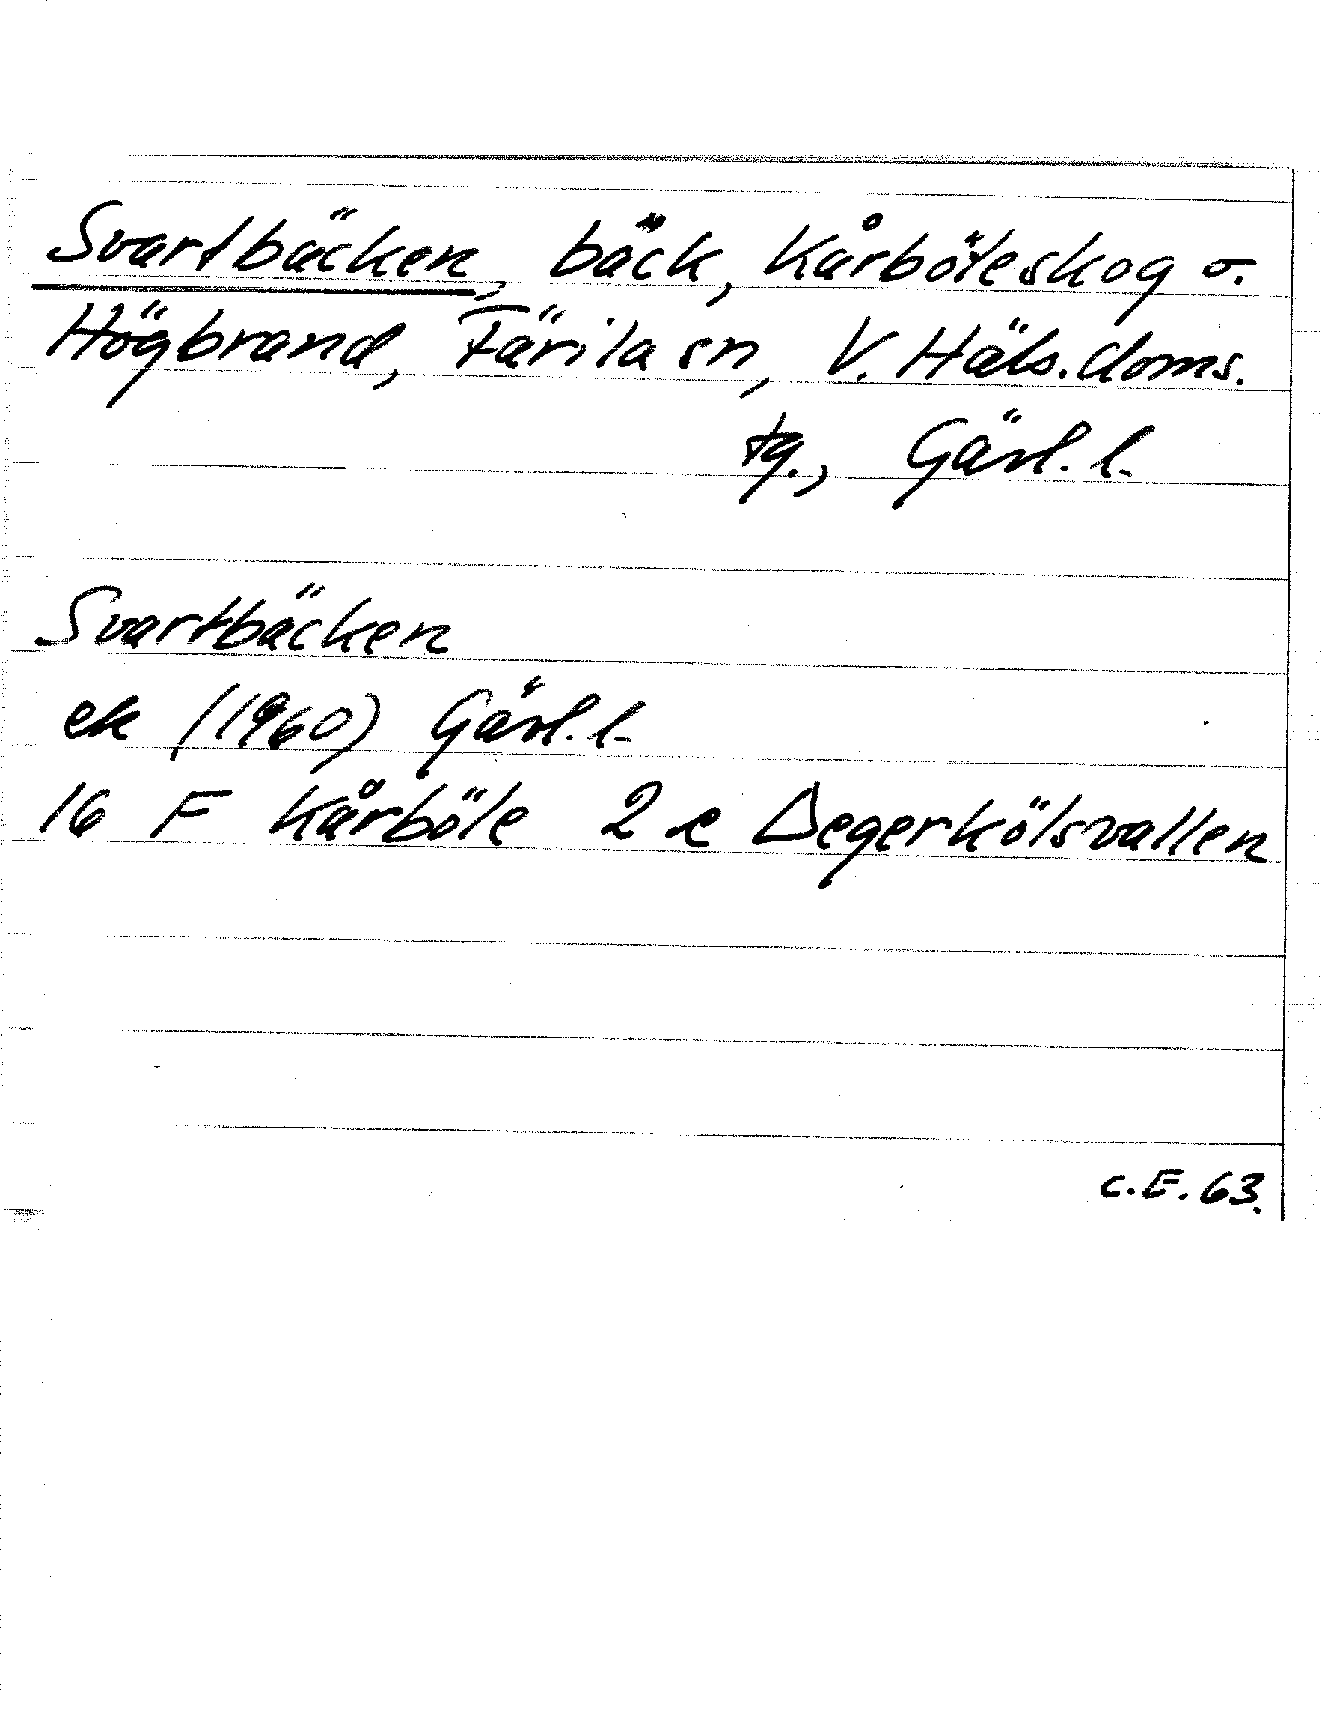 Svartbäcken, bäck, Kårböleskog o.
Högbrand, Färila sn, V. Häls. doms.
tg., Gävl. l.
Svartbäcken
ek (1960) Gävl. l.
16 F Kårböle 2 e Degerkölsvallen
C.E. 63.